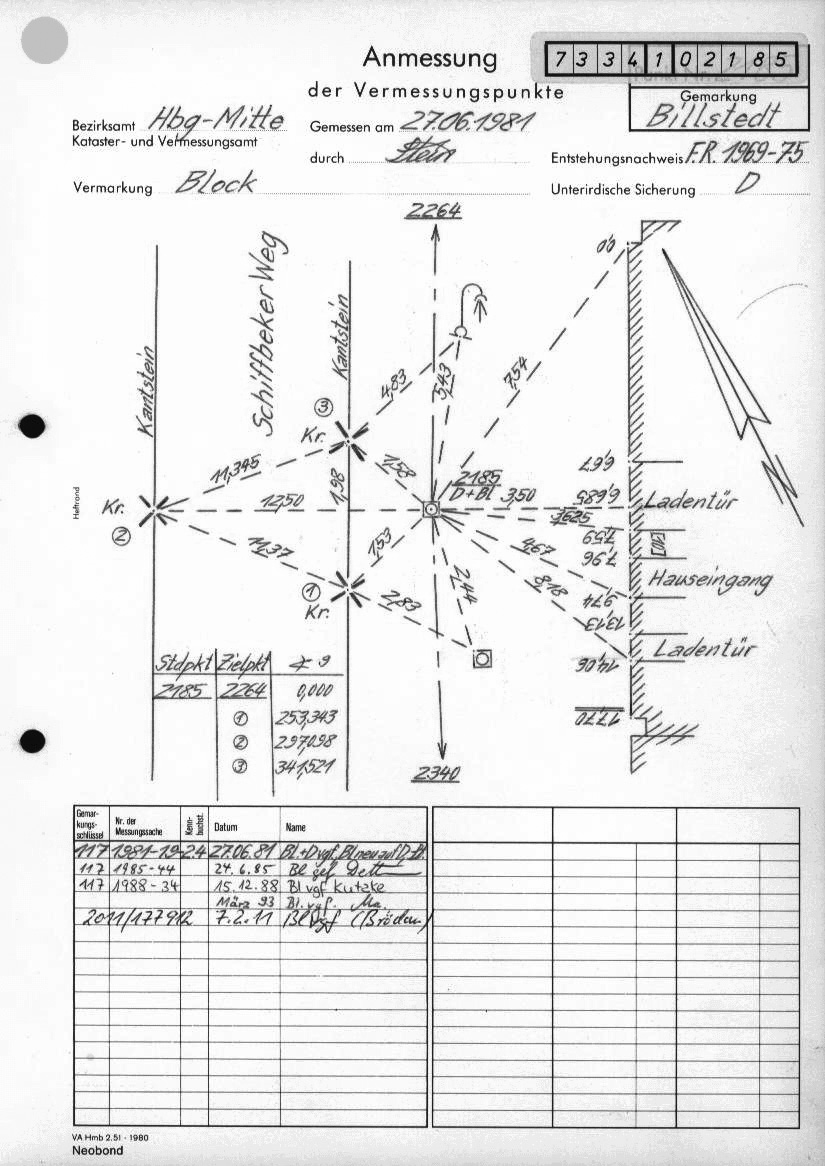 Anmessung
der Vermessungspunkte
7 3 3 4 1 0 2 1 8 5
Gemarkung
Billstedt
Bezirksamt Hbg-Mitte
Kataster- und Vermessungsamt
Gemessen am 27.06.1981
durch Stein
Entstehungsnachweis F.R. 1969-75
Vermarkung Block
Unterirdische Sicherung D
2264
0,0
Schiffbeker Weg
Kantstein
Kantstein
4,83
5,43
7,54
③
Kr.
11,345
1,58
6,67
2185
D+Bl
3,50
6,685
Ladentür
Kr.
12,50
1,98
②
3,625
7,59
7,96
[10]
11,37
1,53
4,67
Hauseingang
①
Kr.
2,83
2,44
8,18
9,74
13,13
14,06
Ladentür
17,70
Heftrand
Stdpkt Zielpkt ∢ g
2185 2264 0,000
① 253,343
② 297,098
③ 341,521
2340
Gemar-
kungs-
schlüssel
Nr. der
Messungssache
Kenn-
buchst.
Datum
Name
117 1981-19-24 27.06.81 Bl.+D vgf, Bl neu auf D, St.
117 1985-44 24.6.85 Bl gef Dett
117 1988-34 15.12.88 Bl vgf Kutzke
März 93 Bl. vgf. Ma.
2011/177912 7.2.11 Bl vgf
VA Hmb 2.51 - 1980
Neobond